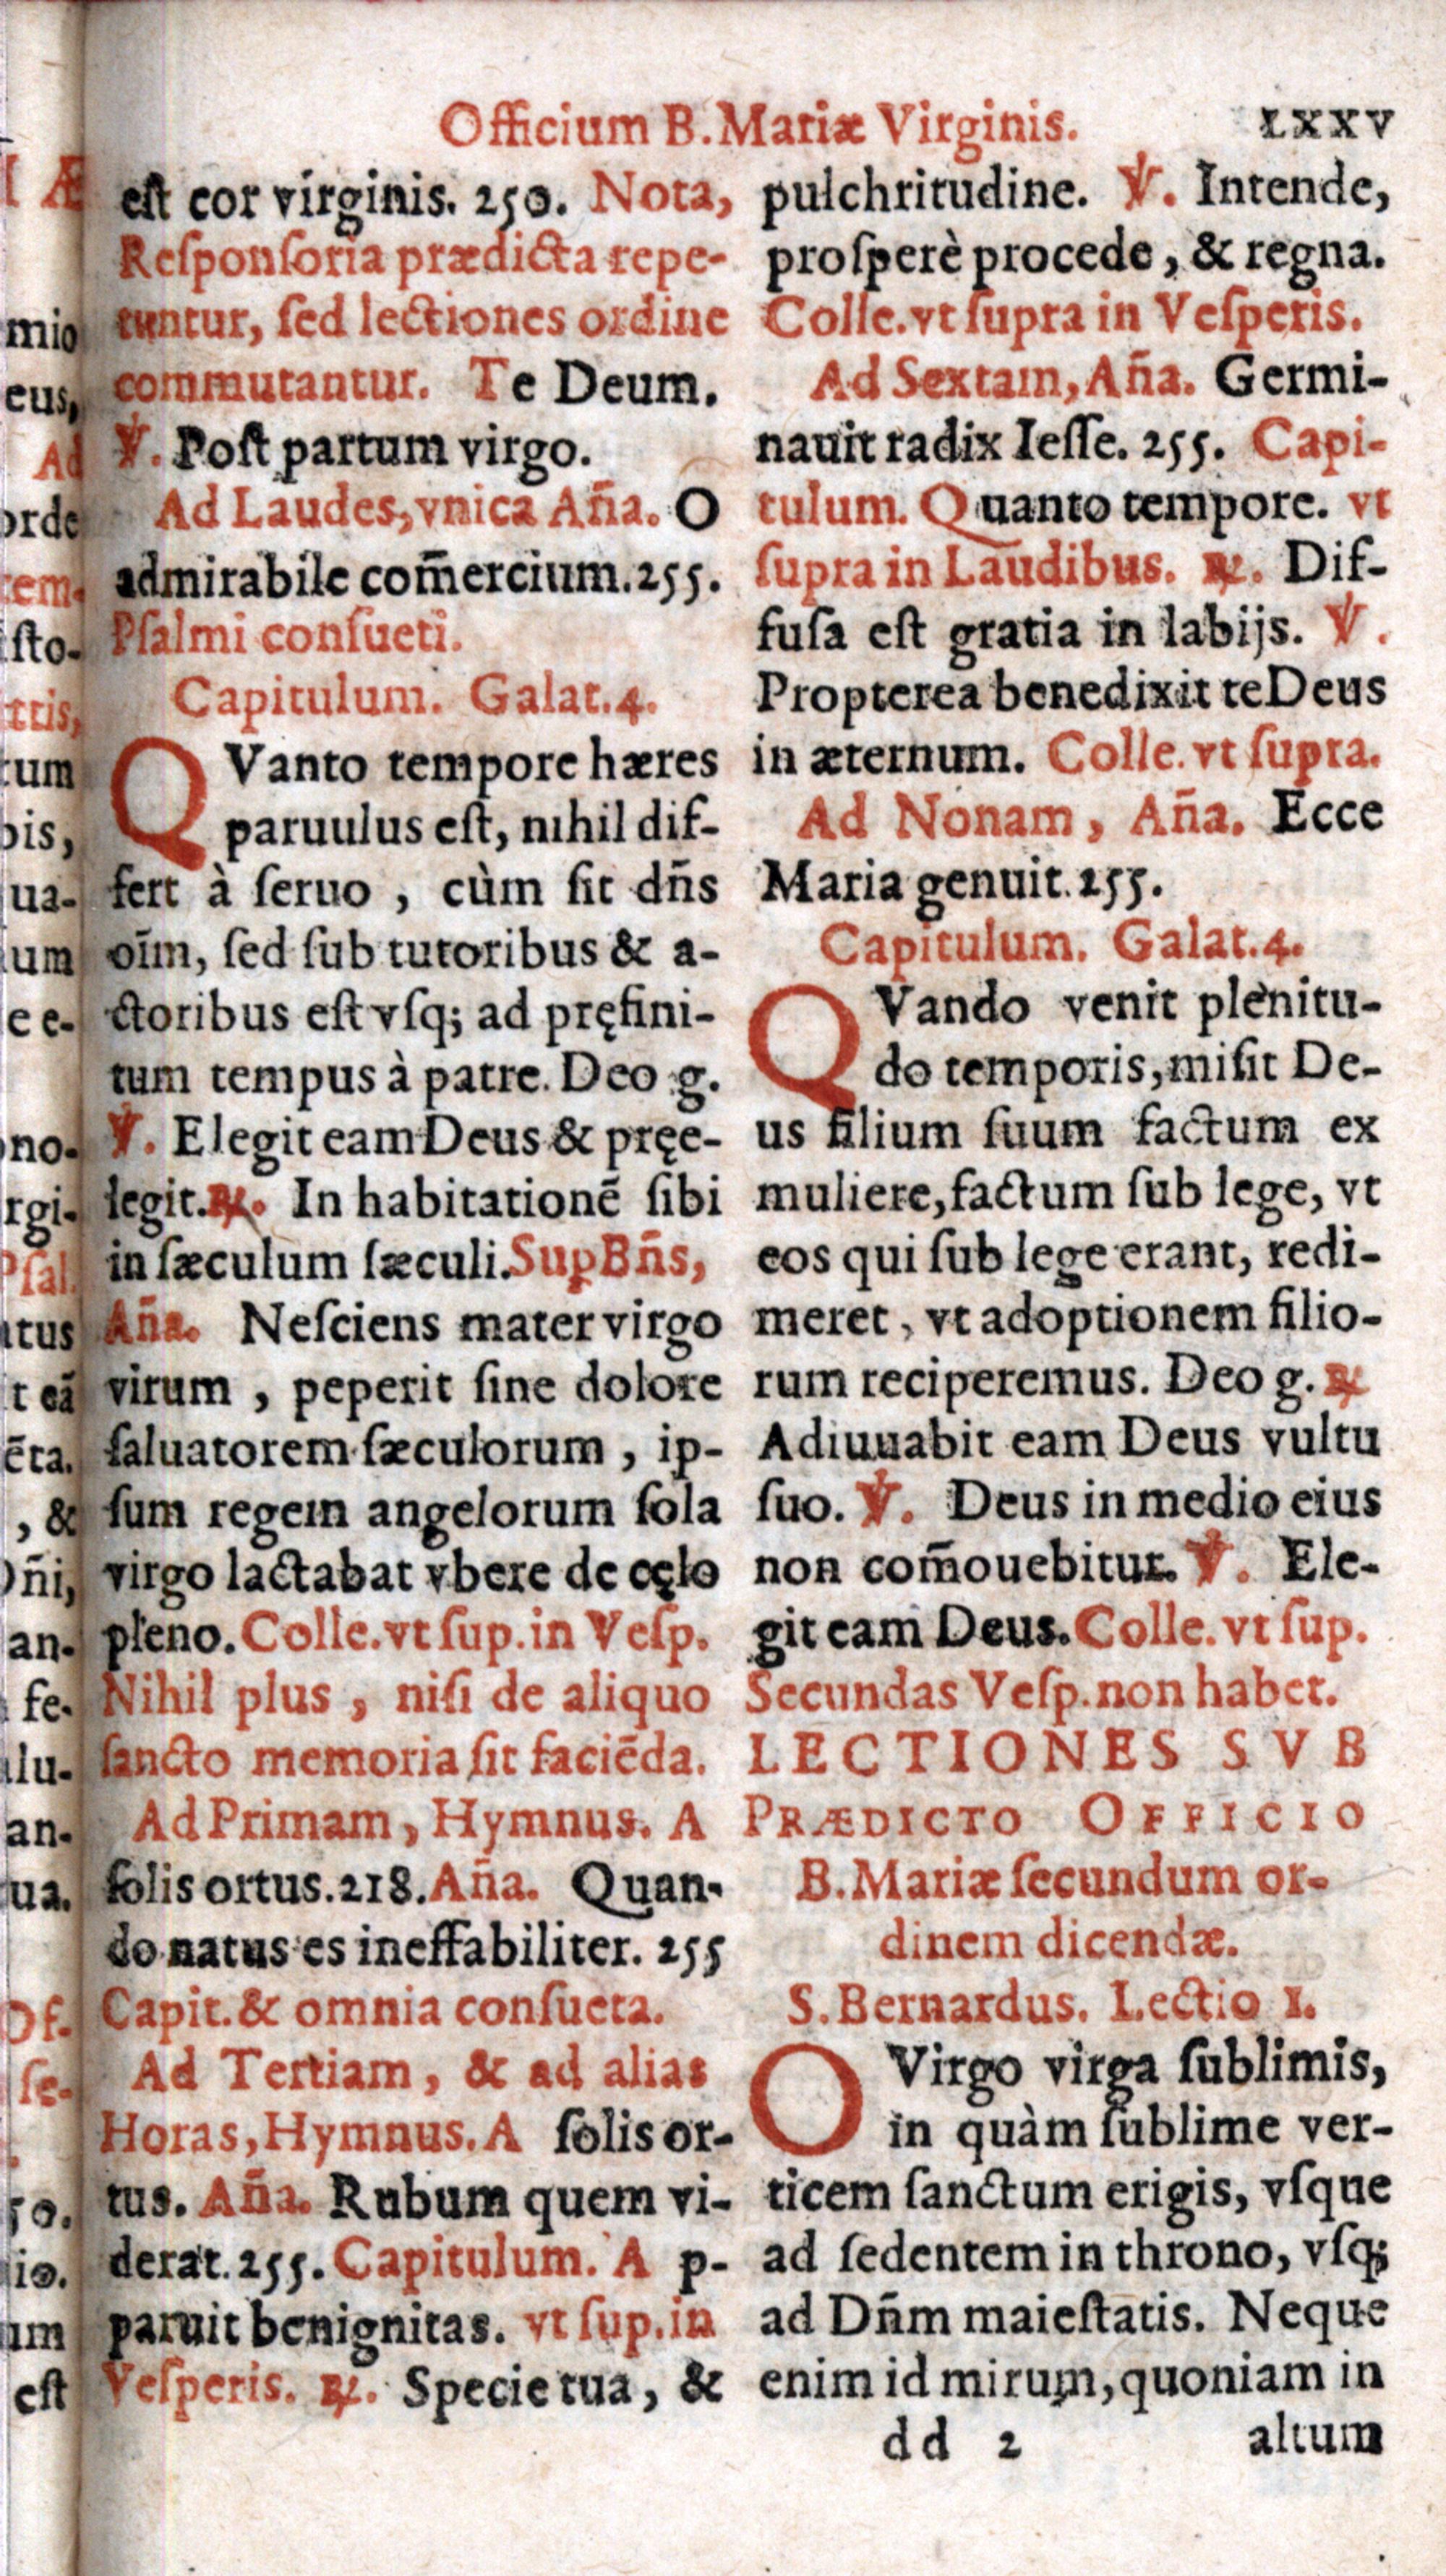 Officium B. Mariæ Virginis. LXXV
eſt cor virginis. 250. Nota,
Reſponſoria prædicta repe-
tuntur, ſed lectiones ordine
commutantur. Te Deum.
℣. Poſt partum virgo.
Ad Laudes, vnica Aña. O
admirabile com̃ercium. 255.
Pſalmi conſueti.
Capitulum. Galat. 4.
QVanto tempore hæres
paruulus eſt, nihil dif-
fert à ſeruo, cùm ſit dñs
oīm, ſed ſub tutoribus & a-
ctoribus eſt vſq; ad pręfini-
tum tempus à patre. Deo g.
℣. Elegit eam Deus & pręe-
legit. ℟. In habitationē ſibi
in ſæculum ſæculi. Sup Bñs,
Aña. Neſciens mater virgo
virum, peperit ſine dolore
ſaluatorem ſæculorum, ip-
ſum regem angelorum ſola
virgo lactabat vbere de cęlo
pleno. Colle. vt ſup. in Veſp.
Nihil plus, niſi de aliquo
ſancto memoria ſit faciēda.
Ad Primam, Hymnus. A
ſolis ortus. 218. Aña. Quan-
do natus es ineffabiliter. 255
Capit. & omnia conſueta.
Ad Tertiam, & ad alias
Horas, Hymnus. A ſolis or-
tus. Aña. Rubum quem vi-
derat. 255. Capitulum. A p-
paruit benignitas. vt ſup. in
Veſperis. ℟. Specie tua, &
pulchritudine. ℣. Intende,
proſperè procede, & regna.
Colle. vt ſupra in Veſperis.
Ad Sextam, Aña. Germi-
nauit radix Ieſſe. 255. Capi-
tulum. Quanto tempore. vt
ſupra in Laudibus. ℟. Dif-
fuſa eſt gratia in labijs. ℣.
Propterea benedixit te Deus
in æternum. Colle. vt ſupra.
Ad Nonam, Aña. Ecce
Maria genuit. 255.
Capitulum. Galat. 4.
QVando venit plenitu-
do temporis, miſit De-
us filium ſuum factum ex
muliere, factum ſub lege, vt
eos qui ſub lege erant, redi-
meret, vt adoptionem filio-
rum reciperemus. Deo g. ℟
Adiuuabit eam Deus vultu
ſuo. ℣. Deus in medio eius
non com̃ouebitur. ℣. Ele-
git eam Deus. Colle. vt ſup.
Secundas Veſp. non habet.
LECTIONES SVB
PRÆDICTO OFFICIO
B. Mariæ ſecundum or-
dinem dicendæ.
S. Bernardus. Lectio I.
O Virgo virga ſublimis,
in quàm ſublime ver-
ticem ſanctum erigis, vſque
ad ſedentem in throno, vſq;
ad Dñm maieſtatis. Neque
enim id mirum, quoniam in
dd 2 altum